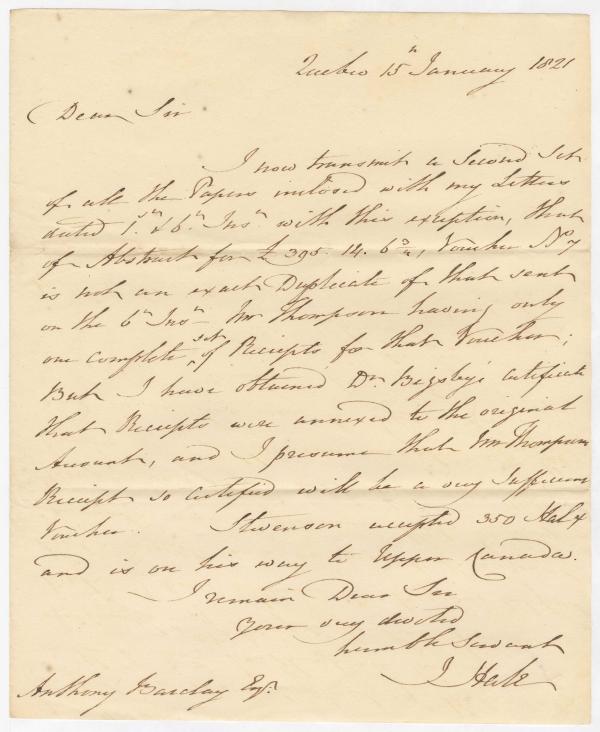 Quebec 15th January 1821
Dear Sir
I now transmit a Second Set
of all the Papers inclosed with my Letters
dated 1st & 6th Inst with this exception, that
of Abstract for £395. 14. 6 3/4, Voucher No 7
is not an exact Duplicate of that sent
on the 6th Inst Mr Thompson having only
one complete set of Receipts for that Voucher;
But I have obtained Dr Bigsby's Certificate
that Receipts were annexed to the original
Account, and I presume that Mr Thompson
Receipt so certified will be a very sufficient
Voucher. Stevenson accepted 350 Hal
and is on his way to Upper Canada.
I remain Dear Sir
Your very devoted
humble Servant
J Hale
Anthony Barclay Esqr.